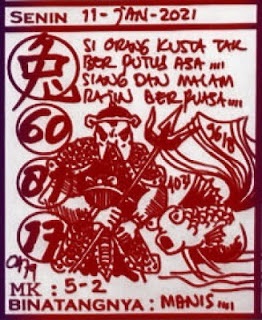 SENIN 11-JAN-2021
SI ORANG KUSTA TAK
BER PUTUS ASA....
SIANG DAN MALAM
RAJIN BERPUASA....
兔
60
17
MK : 5-2
BINATANGNYA : MANIS....